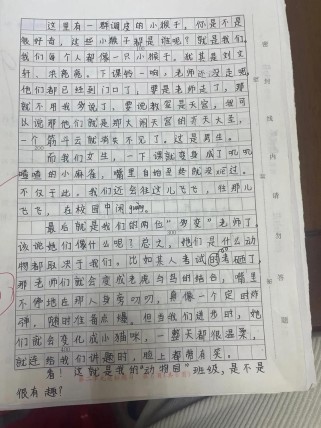 这里有一群调皮的小猴子，你是不是
很好奇，这些小猴子都是谁呢？就是我们，
我们每个人都像一只小猴子。尤其是刘文
轩、洪
下课铃一响，老师还没走呢，
他们都已经到门口了，要是老师走了，那
就不用我多说了，要说教室是天宫，我可
以说那他们就是那大闹天宫的齐天大圣，
一个筋斗云就消失不见了。这是男生。
而我们女生，一下课就变身成了叽叽
喳喳的小麻雀，嘴里自始至终就没闭过。
不仅于此。我们还会往这儿飞飞，往那儿
飞飞，在校园中闲guàng。
最后就是我们的两位“易变”老师了。
该说她们像什么呢？总之，她们是什么动
物都取决于我们。比如某人考试的考砸了，
那老师们就会变成老虎与鸟的结合，嘴里
不停地在那人身旁叨叨，身像一个定时炸
弹，随时准备点爆。但当我们进步时，她
们就会变化成小猫咪，一整天都很温柔，
就连给我们讲题时，脸上都带有笑。
看！这就是我的“动物园”班级，是不是
很有趣？
密
封
线
内
请
勿
答
题